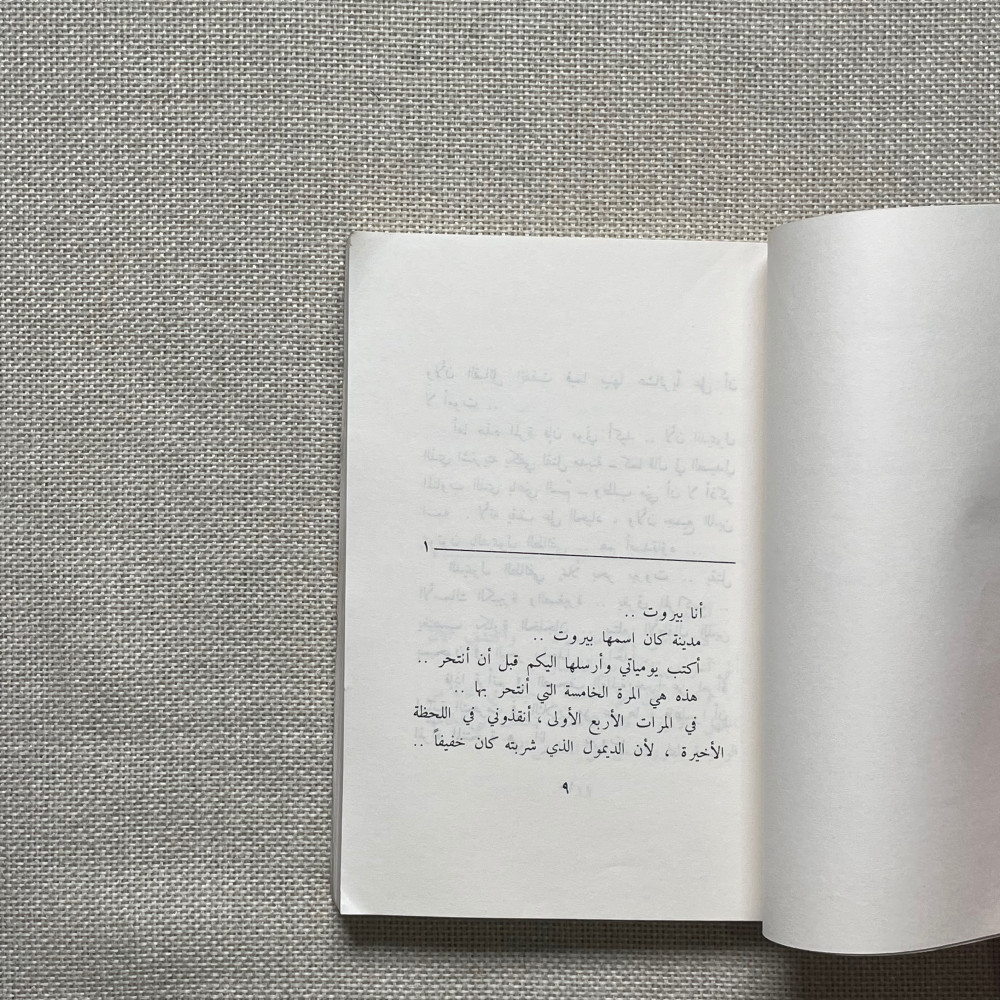 ١
أنا بيروت ..
مدينة كان اسمها بيروت ..
أكتب يومياتي وأرسلها اليكم قبل أن أنتحر ..
هذه هي المرة الخامسة التي أنتحر بها ..
في المرات الأربع الأولى، أنقذوني في اللحظة
الأخيرة ، لأن الديمول الذي شربته كان خفيفاً ..
٩